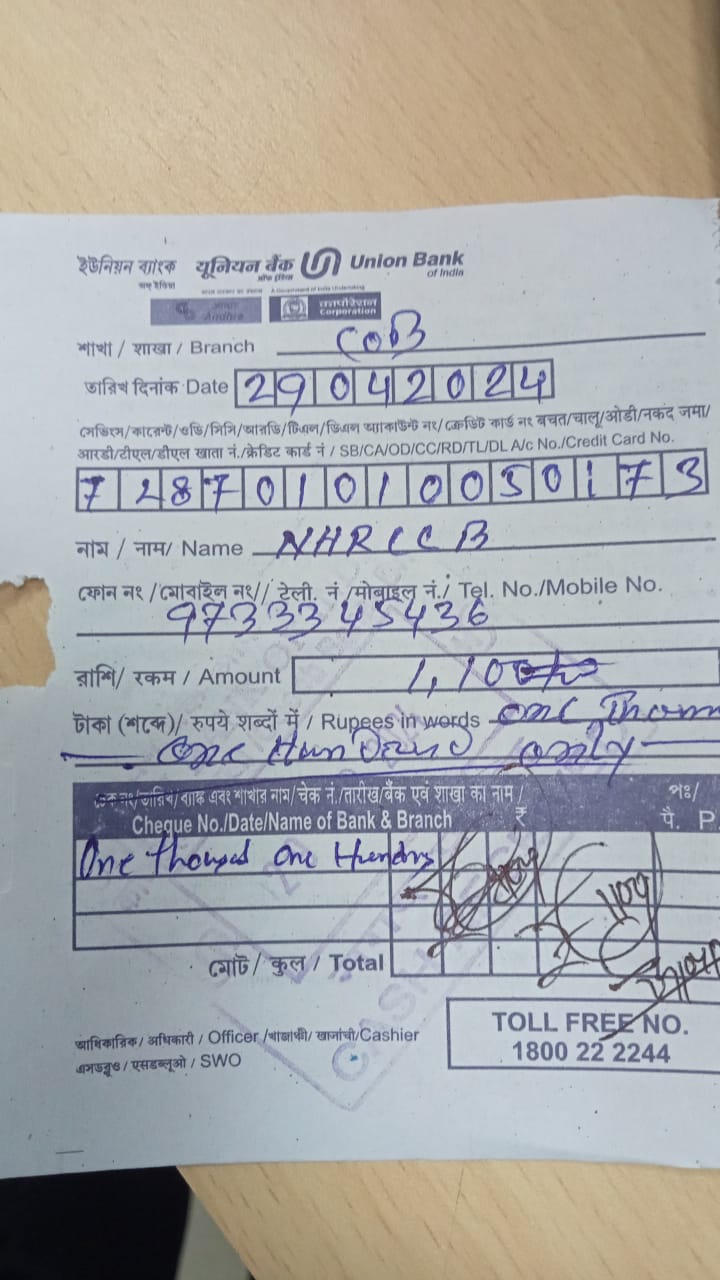 ইউনিয়ন ব্যাংক यूनियन बैंक Union Bank
অফ ইন্ডিয়া ऑफ इंडिया of India
A Government of India Undertaking
Andhra कारपोरेशन
Corporation
শাখা / शाखा / Branch COB
তারিখ दिनांक Date 29042024
সেভিংস/কারেন্ট/ওভি/সিসি/আরডি/টিএল/ডিএল অ্যাকাউন্ট নং/ক্রেডিট কার্ড নং बचत/चालू/ओडी/नकद जमा/
आरडी/टीएल/डीएल खाता नं./क्रेडिट कार्ड नं / SB/CA/OD/CC/RD/TL/DL A/c No./Credit Card No.
728701010050173
নাম / नाम/ Name NHRCCB
ফোন নং /মোবাইল নং// टेली. नं./मोबाइल नं./ Tel. No./Mobile No.
9733345436
রাশি/ रकम / Amount 1,100/-
টাকা (শব্দে)/ रुपये शब्दों में / Rupees in words One Thous
One Hundred only
চেক নং/তারিখ/ব্যাঙ্ক এবং শাখার নাম/चेक नं./तारीख/बैंक एवं शाखा का नाम / পঃ/
Cheque No./Date/Name of Bank & Branch ₹ पै. P
One thousad One Hundrs
1100
মোট / कुल / Total
TOLL FREE NO.
1800 22 2244
আধিকারিক / अधिकारी / Officer /খাজাঞ্চী/ खजांची/Cashier
এসডব্লুও / एसडब्लूओ / SWO